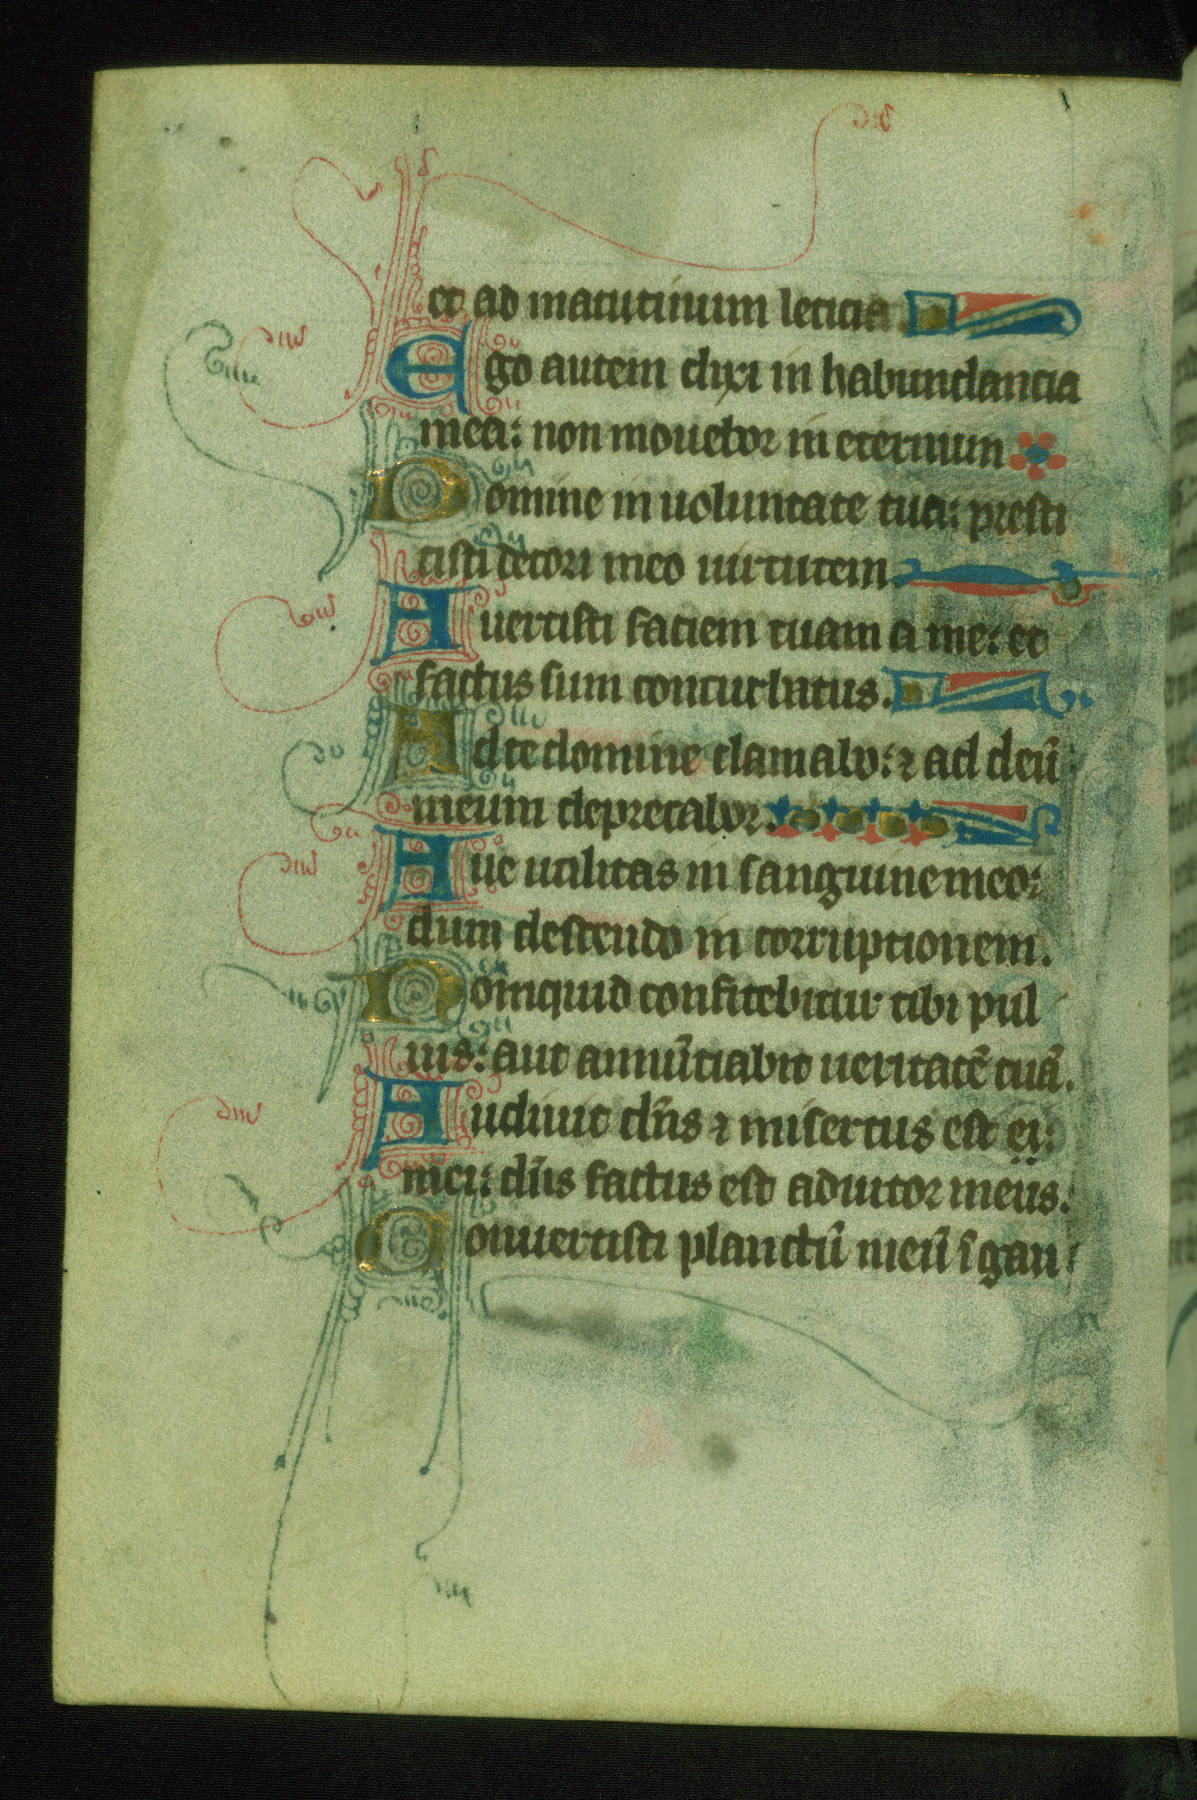 et ad matutinum leticia.
Ego autem dixi in habundancia
mea: non mouebor in eternum
Domine in uoluntate tua: presti
tisti decori meo uirtutem.
Auertisti faciem tuam a me: et
factus sum conturbatus.
Ad te domine clamabo: ⁊ ad deū
meum deprecabor.
Que utilitas in sanguine meo:
dum descendo in corruptionem.
Nomquid confitebitur tibi pul
uis: aut annūciabit ueritatē tuā.
Audiuit dn̄s ⁊ misertus est ei:
mei: dn̄s factus est adiutor meus.
Conuertisti planctū meū ī gau